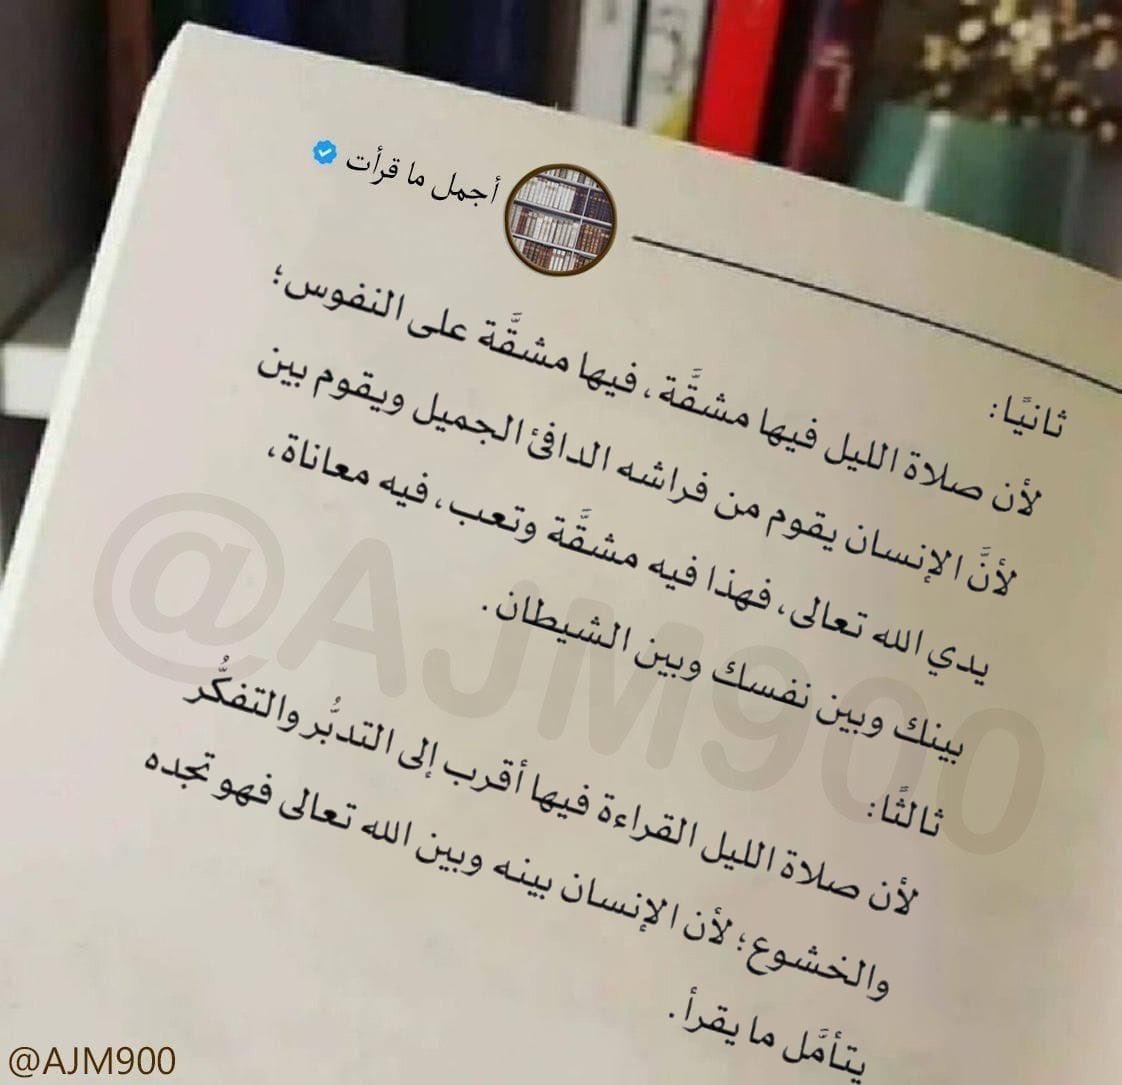 أجمل ما قرأت
ثانيًا:
لأن صلاة الليل فيها مشقَّة، فيها مشقَّة على النفوس؛
لأنَّ الإنسان يقوم من فراشه الدافئ الجميل ويقوم بين
يدي الله تعالى، فهذا فيه مشقَّة وتعب، فيه معاناة،
بينك وبين نفسك وبين الشيطان.
ثالثًا:
لأن صلاة الليل القراءة فيها أقرب إلى التدبُّر والتفكُّر
والخشوع؛ لأن الإنسان بينه وبين الله تعالى فهو تجده
يتأمَّل ما يقرأ.
@AJM900
@AJM900